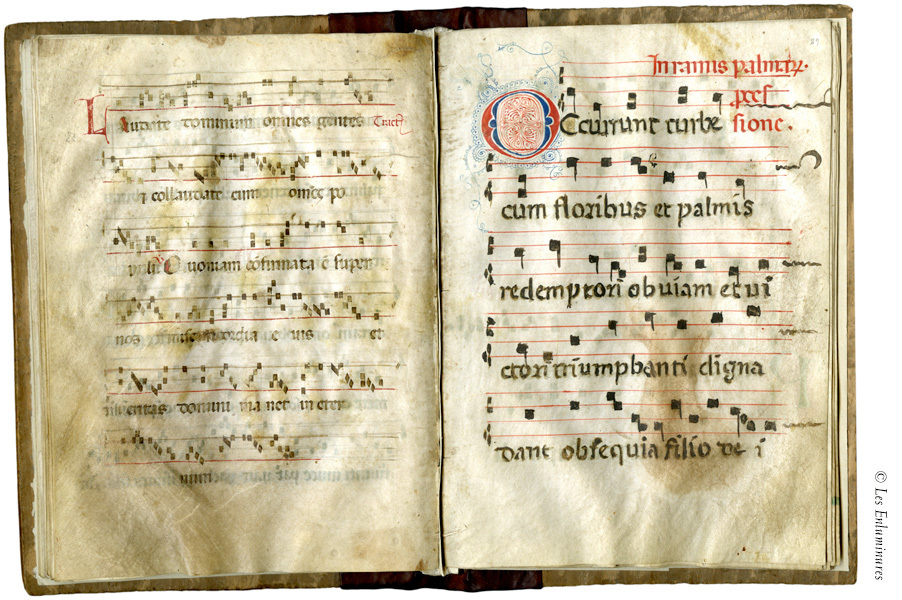 Laudate dominum omnes gentes Tract
et collaudate eum omēs po
puli Quoniam cōfirmata ē super
nos misericordia eius et
veritas domini manet in eter
In ramis palmaꝝ.
Occurrunt turbe
sione.
cum floribus et palmis
redemptori obuiam et ui
ctori triumphanti digna
dant obsequia filio de i
© Les Enluminures